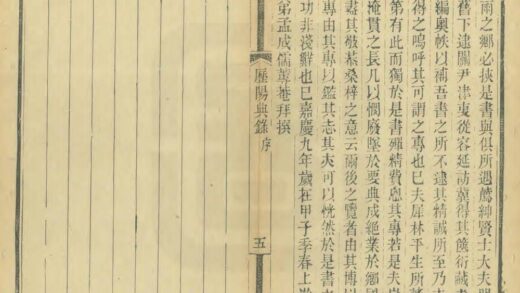 雨之鄉必挾是書與俱所遇薦紳賢士大夫
舊下逮關尹津吏從容延訪冀得其篋衍藏
編奧帙以補吾書之所不逮其精誠所至乃
得之嗚呼其可謂之專也已夫犀林平生所
第有此而獨於是書殫精費思其專若是夫
掩貫之長凡以憫廢墜於要典成絕業於鄉
盡其敬恭桑梓之意云爾後之覽者由其博
專由其專以鑑其志其亦可以恍然於是書
功非淺尠也已嘉慶九年歲在甲子季春上
弟孟成儒拜撰
歷陽典錄 序 五